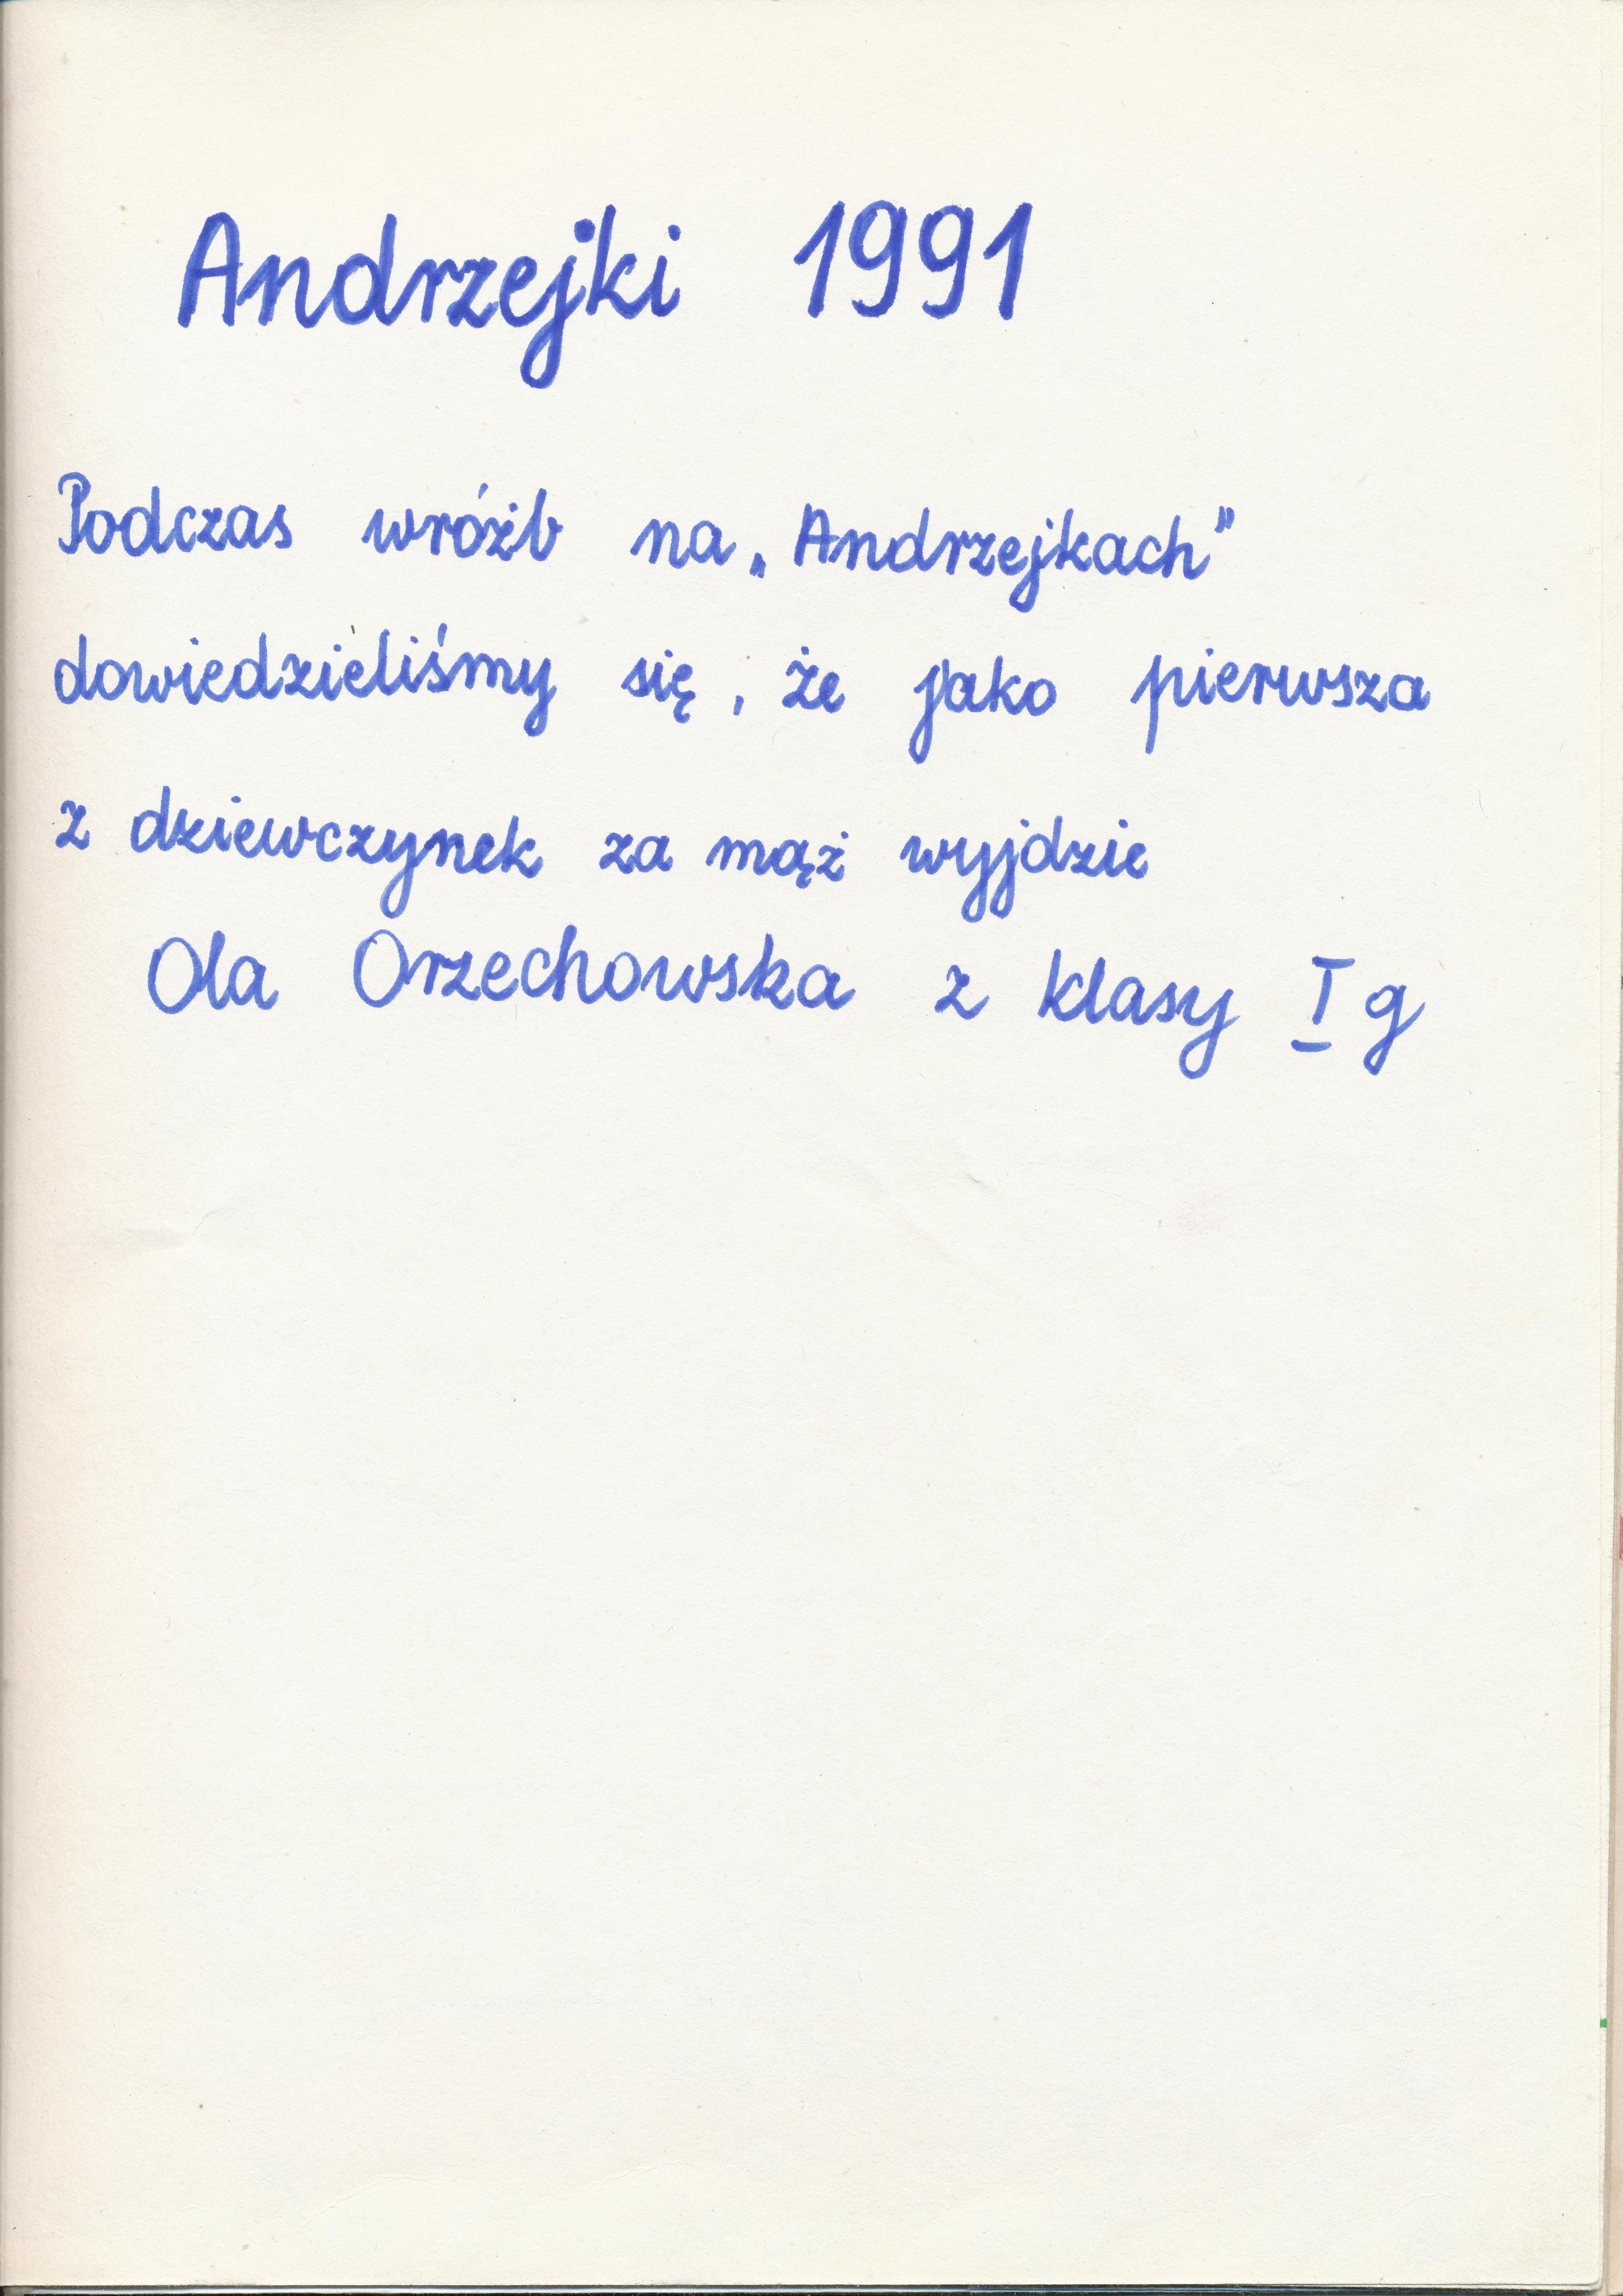 Andrzejki 1991
Podczas wróżb na „Andrzejkach”
dowiedzieliśmy się, że jako pierwsza
z dziewczynek za mąż wyjdzie
Ola Orzechowska z klasy I g